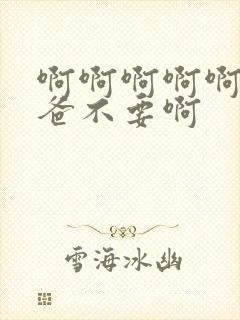 啊啊啊啊啊
爸不要啊
雪海冰幽